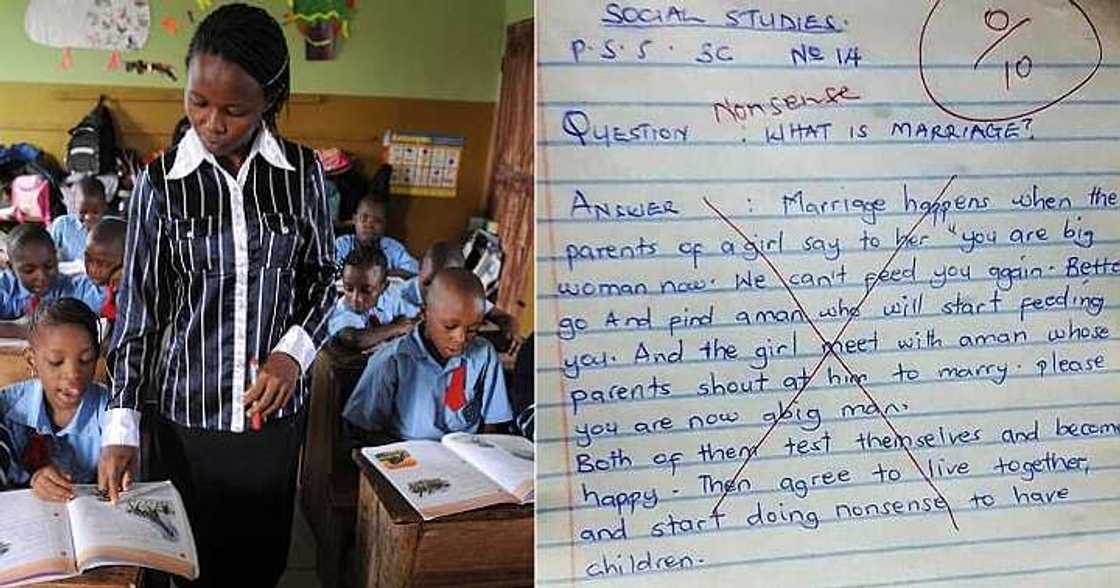 SOCIAL STUDIES.
P.S.S. 3C No 14
0/10
Nonsense
QUESTION : WHAT IS MARRIAGE?
ANSWER : Marriage happens when the
parents of a girl say to her "you are big
woman now. We can't feed you again. Bette
go And find a man who will start feeding
you. And the girl meet with a man whose
parents shout at him to marry. please
you are now a big man.
Both of them test themselves and become
happy. Then agree to live together,
and start doing nonsense to have
children.